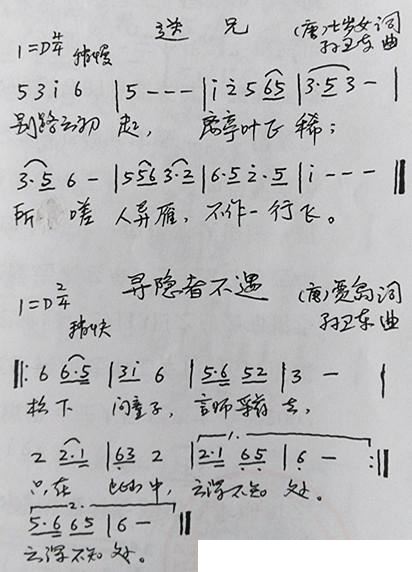 送兄
1=D 4/4 稍慢
(唐)七岁女 词
孙卫东 曲
5 3 i 6 | 5 - - - | i 2 5 65 | 3·5 3 - |
别路云初 起， 离亭叶飞 稀；
3·5 6 - | 5 56 3·2 | 6·5 2·5 | i - - - ‖
所 嗟 人异雁， 不作一行飞。
寻隐者不遇
1=D 2/4 稍快
(唐)贾岛 词
孙卫东 曲
‖: 6 6·5 | 3i 6 | 5·6 52 | 3 - |
松下 问童子， 言师采药 去，
2 2·1 | 63 2 | 1. 2·1 65 | 6 - :‖
只在 此山中， 云深不知 处。
2. 5·6 65 | 6 - ‖
云深不知 处。